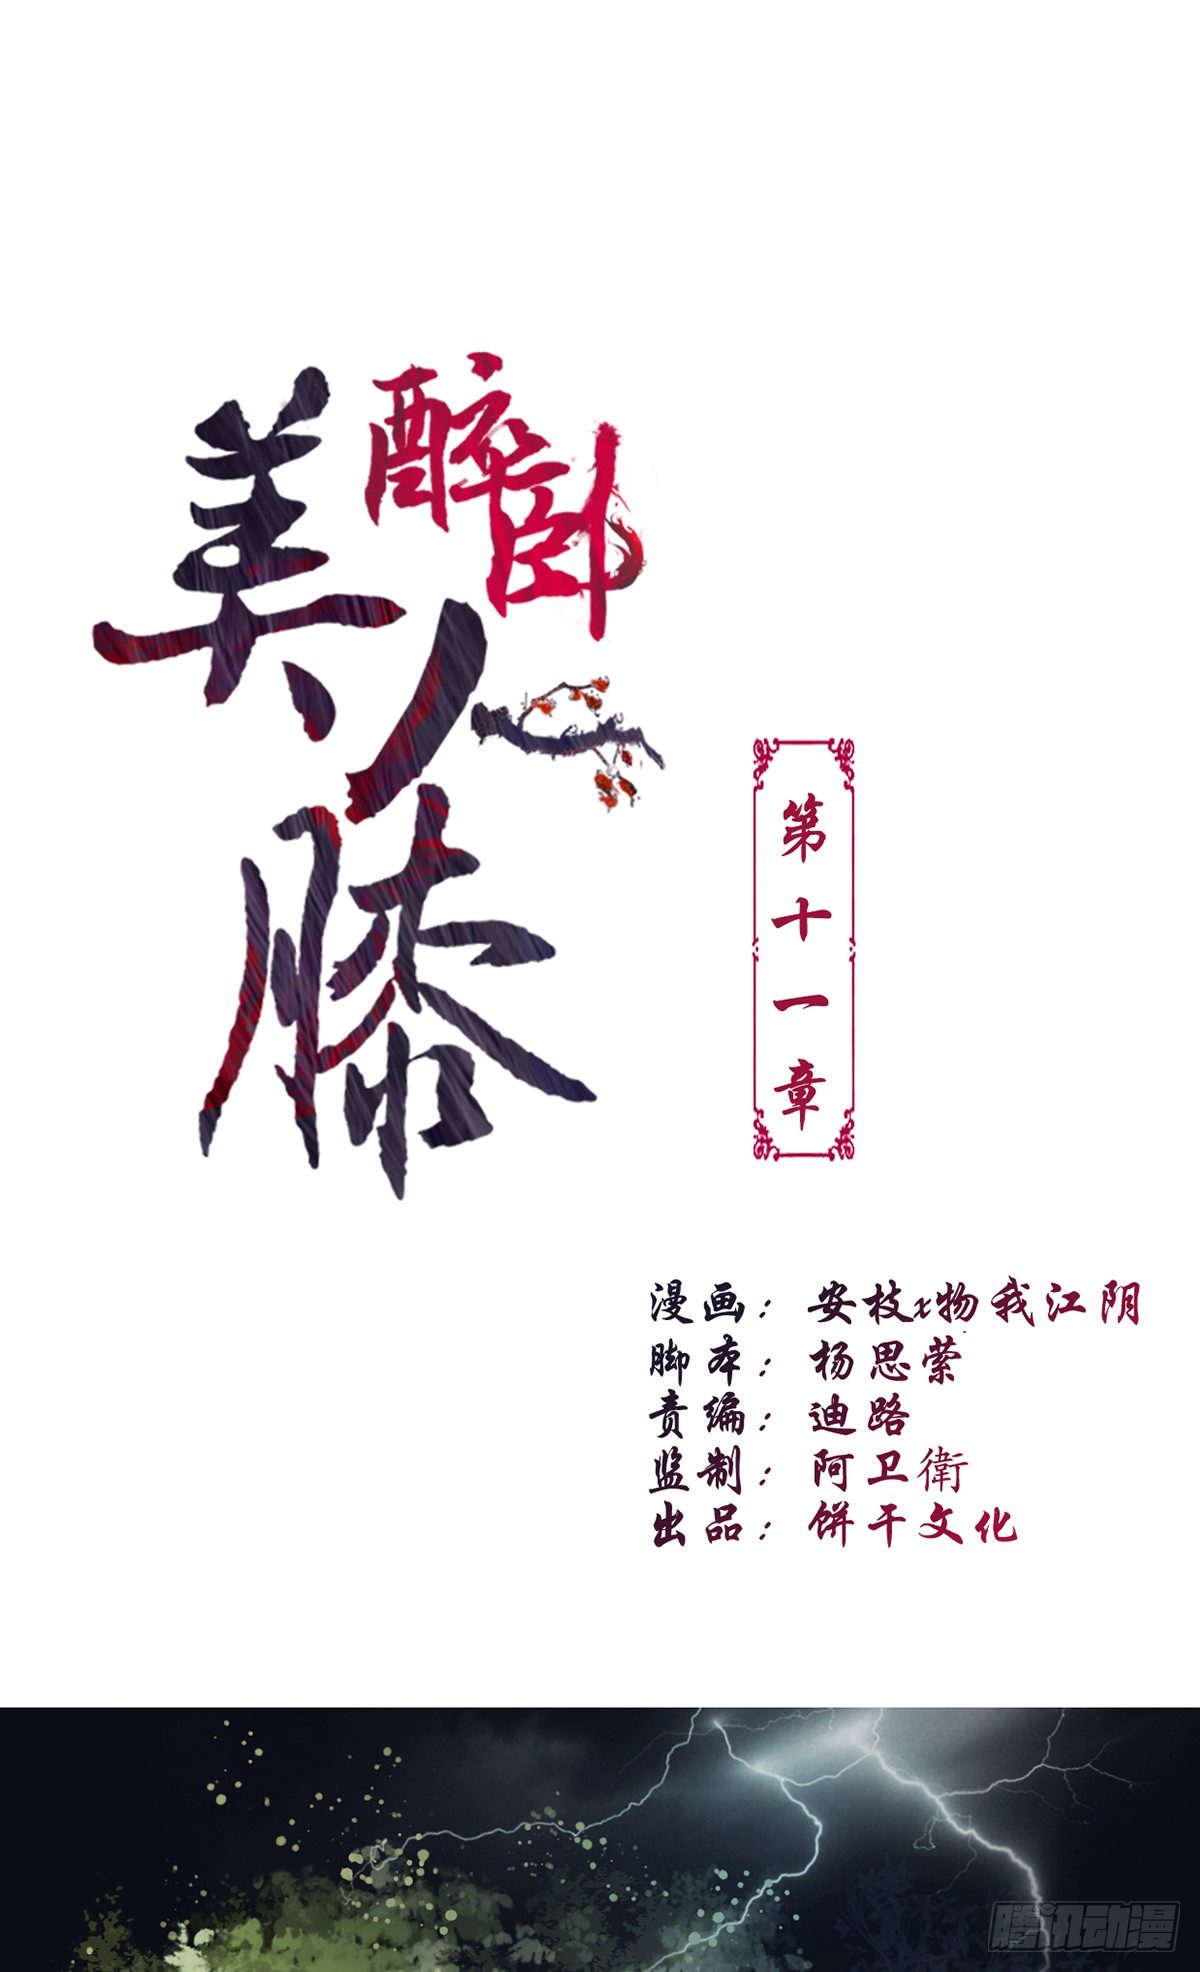 醉卧
美人膝
第十一章
漫画：安枝x物我江阴
脚本：杨思萦
责编：迪路
监制：阿卫衛
出品：饼干文化
腾讯动漫